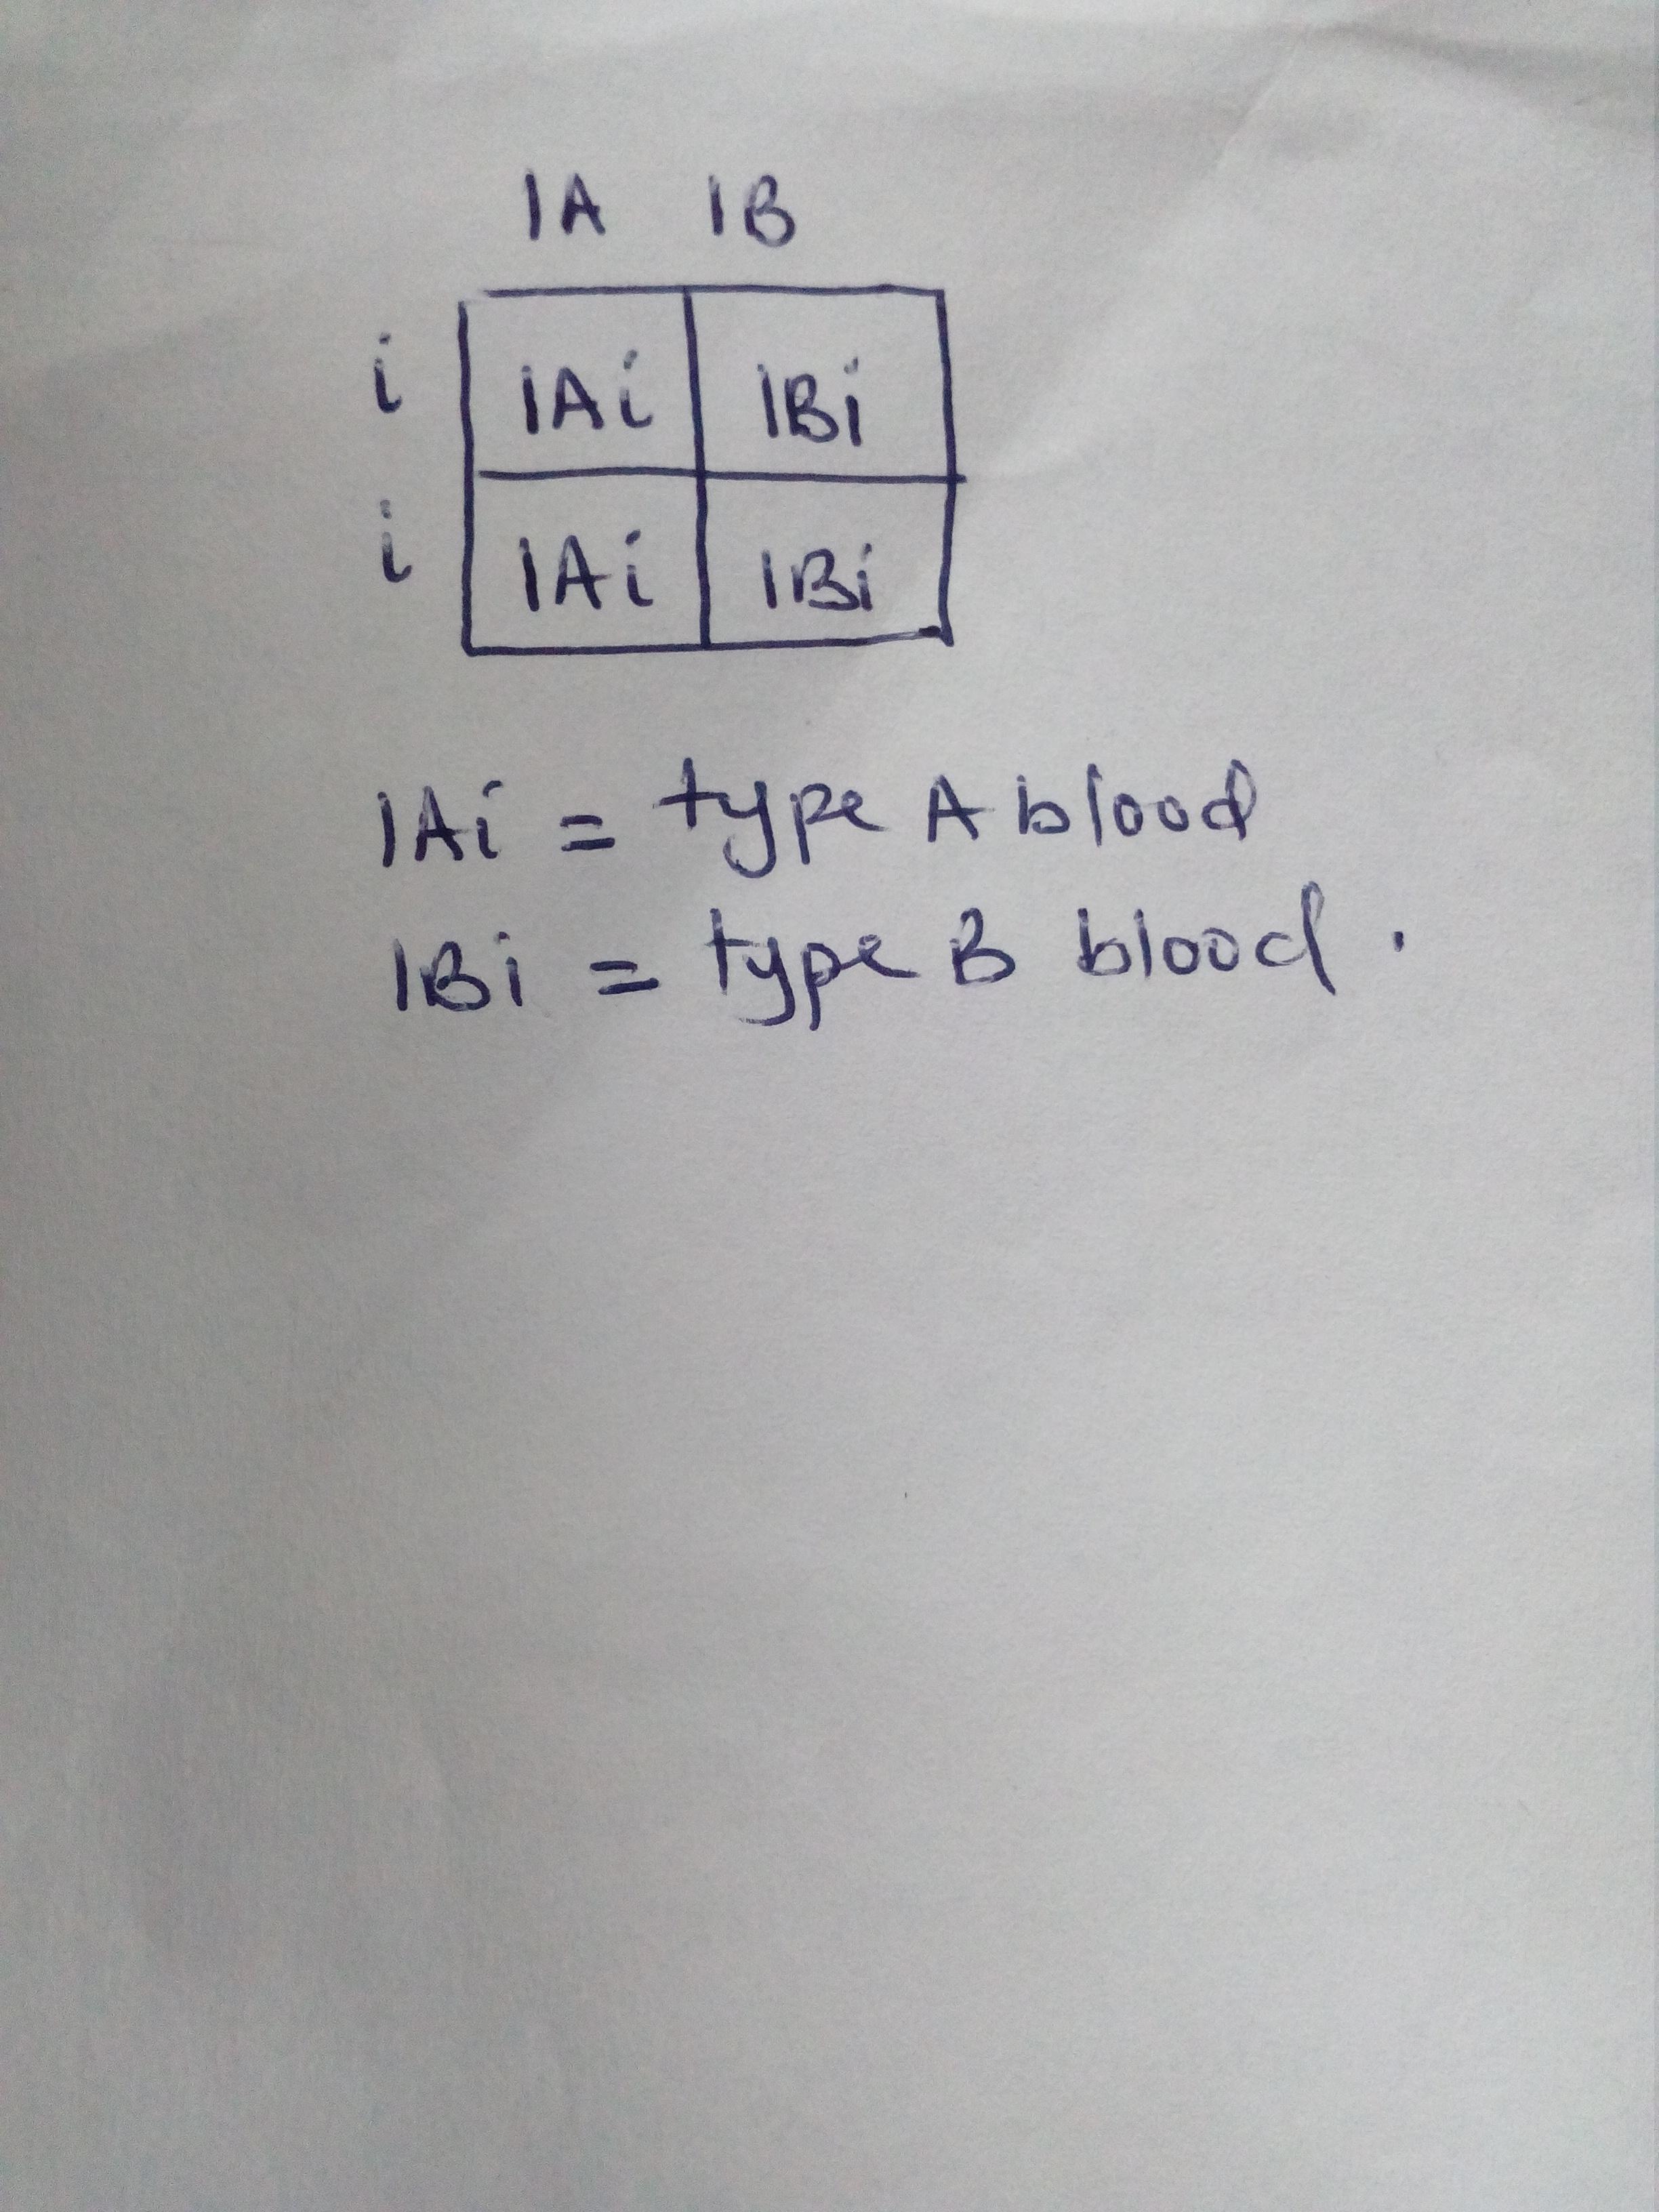 IA IB
i IAi IBi
i IAi IBi
IAi = type A blood
IBi = type B blood.